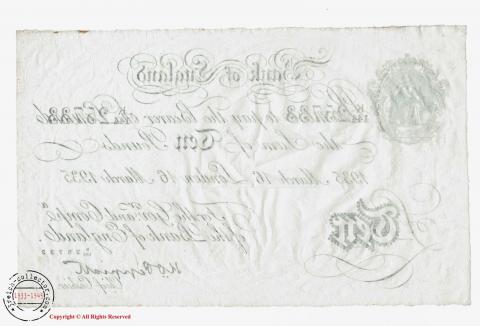 Bank of England
to pay the Bearer
the Sum of Ten Pounds
1935 March 16 London 16 March 1935
For the Govr. and Compa.
of the Bank of England.
Ten
Chief Cashier
1933-1945
Copyright © All Rights Reserved